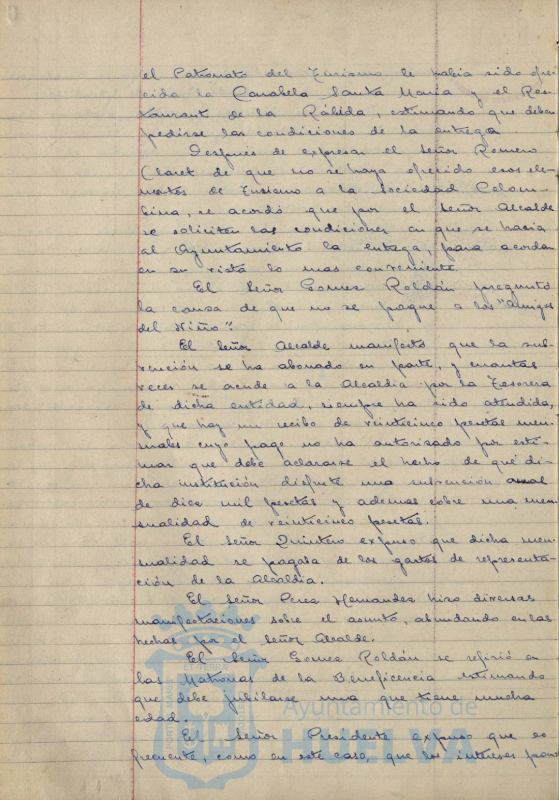 el Patronato del Turismo le habia sido ofre-
cida la Carabela Santa Maria y el Res-
taurant de la Rábida, estimando que deben
pedirse las condiciones de la entrega.
Después de expresar el Señor Romero
Claret de que no se haya ofrecido esos ele-
mentos de Turismo a la Sociedad Colom-
bina, se acordó que por el Señor Alcalde
se soliciten las condiciones en que se haria
al Ayuntamiento la entrega, para acordar
en su vista lo mas conveniente.
El Señor Gomez Roldán preguntó
la causa de que no se pague a los "Amigos
del Niño".
El Señor Alcalde manifestó que la sub-
vención se ha abonado en parte, y cuantas
veces se acude a la Alcaldia por la Tesorera
de dicha entidad, siempre ha sido atendida,
y que hay un recibo de veinticinco pesetas men-
suales cuyo pago no ha autorizado por esti-
mar que debe aclararse el hecho de que di-
cha institución disfrute una subvención anual
de diez mil pesetas y ademas cobre una men-
sualidad de veinticinco pesetas.
El Señor Quintero expuso que dicha men-
sualidad se pagaba de los gastos de representa-
ción de la Alcaldia.
El Señor Perez Hernandez hizo diversas
manifestaciones sobre el asunto, abundando en las
hechas por el Señor Alcalde.
El Señor Gomez Roldán se refirió a
las Matronas de la Beneficencia estimando
que debe jubilarse una que tiene mucha
edad.
El Señor Presidente expuso que es
frecuente, como en este caso, que los intereses
Ayuntamiento de
HUELVA